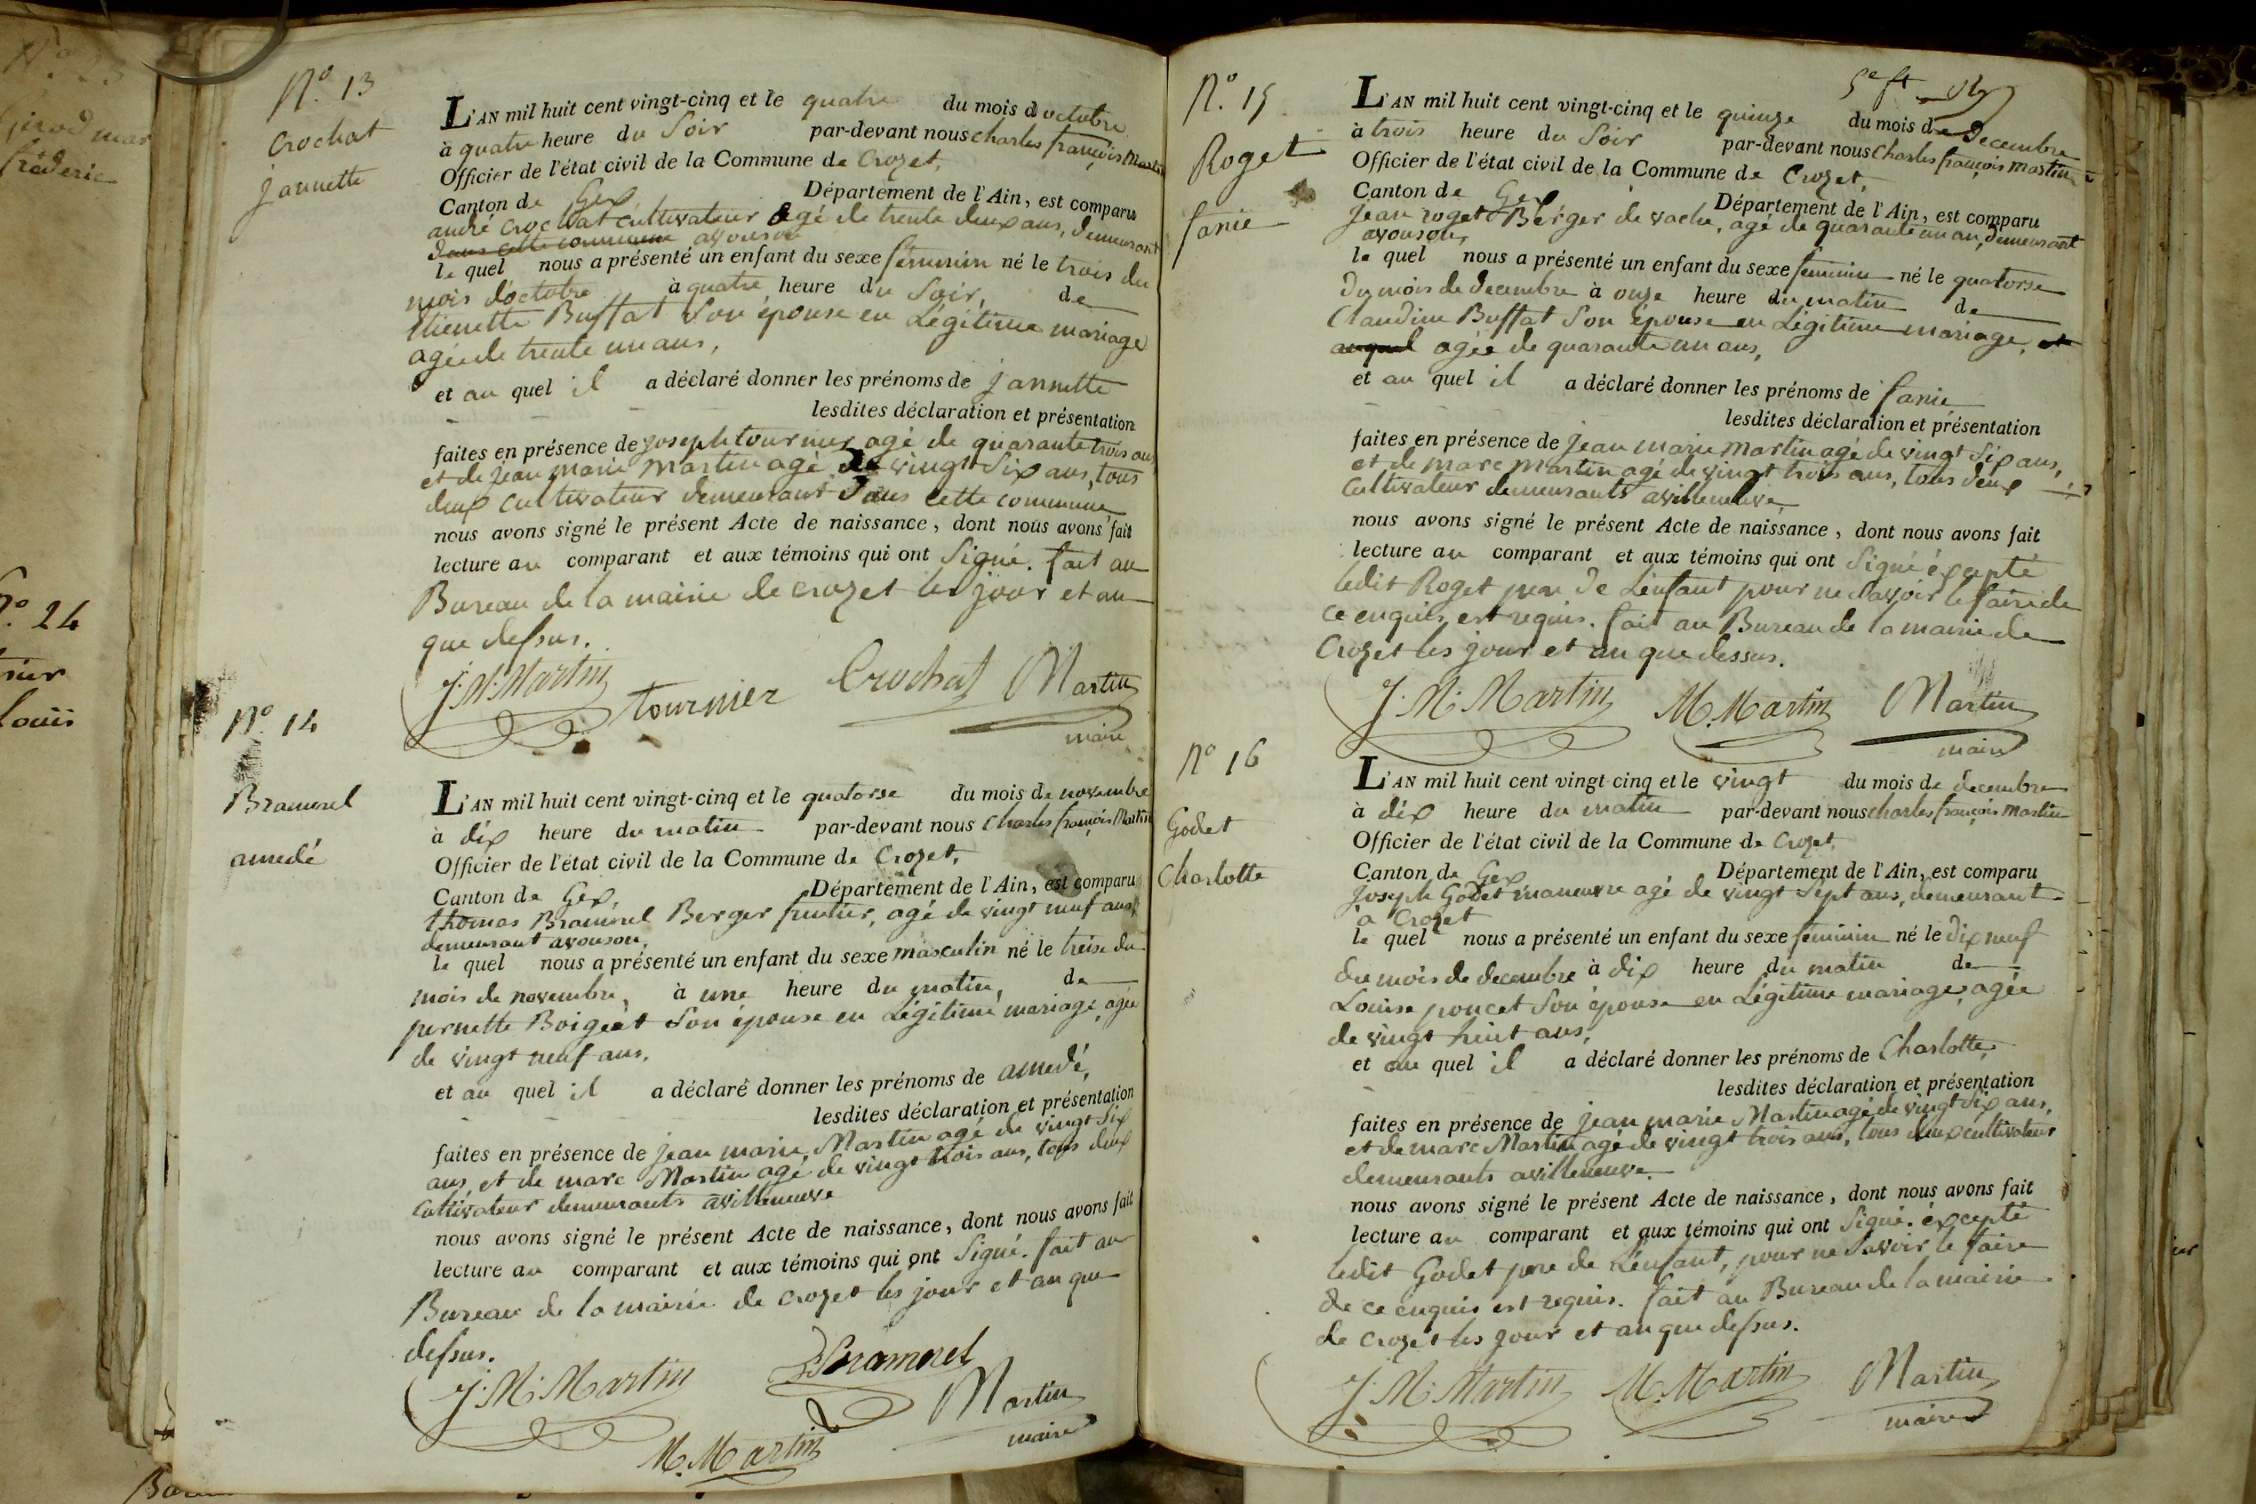 N.° 13
Crochat
jannette
L'AN mil huit cent vingt-cinq et le quatre du mois d octobre
à quatre heure du soir par-devant nous charles françois Martin
Officier de l'état civil de la Commune de Crozet,
Canton de Gex Département de l'Ain, est comparu
andré Crochat cultivateur agé de trente deux ans, demeurant
dans cette commune avouson
le quel nous a présenté un enfant du sexe féminin né le trois du
mois d'octobre à quatre heure du soir, de
Etienette Buffat son épouse en Légitime mariage
agée de trente un ans,
et au quel il a déclaré donner les prénoms de jannette
lesdites déclaration et présentation
faites en présence de joseph tournier agé de quarante trois ans
et de jean marie Martin agé de vingt six ans, tous
deux cultivateur demeurant dans cette commune
nous avons signé le présent Acte de naissance, dont nous avons fait
lecture au comparant et aux témoins qui ont signé. fait au
Bureau de la mairie de crozet les jour et an
que dessus.
J. M. Martin tournier Crochat Martin
maire
N.° 14
Bramerel
amedé
L'AN mil huit cent vingt-cinq et le quatorse du mois de novembre
à dix heure du matin par-devant nous Charles françois Martin
Officier de l'état civil de la Commune de Crozet,
Canton de Gex, Département de l'Ain, est comparu
thomas Bramerel Berger fruitier, agé de vingt neuf ans,
demeurant avouson,
le quel nous a présenté un enfant du sexe masculin né le treise du
mois de novembre, à une heure du matin, de
pernette Boigeët son épouse en Légitime mariage, agée
de vingt neuf ans,
et au quel il a déclaré donner les prénoms de amedé,
lesdites déclaration et présentation
faites en présence de jean marie, Martin agé de vingt six
ans, et de marc Martin agé de vingt trois ans, tous deux
Cultivateur demeurants avilleneuve
nous avons signé le présent Acte de naissance, dont nous avons fait
lecture au comparant et aux témoins qui ont signé. fait au
Bureau de la mairie de crozet les jour et an que
dessus.
J. M. Martin Bramerel
Martin
maire
M. Martin
N.° 15
Roget
fanie
5e ft
L'AN mil huit cent vingt-cinq et le quinze du mois de Decembre
à trois heure du soir par-devant nous Charles françois Martin
Officier de l'état civil de la Commune de Crozet,
Canton de Gex Département de l'Ain, est comparu
jean roget Berger de vache, agé de quarante un an, demeurant
avouson,
le quel nous a présenté un enfant du sexe féminin né le quatorse
du mois de decembre à onze heure du matin de
Claudine Buffat son épouse en Légitime mariage, et
auquel agée de quarante un ans,
et au quel il a déclaré donner les prénoms de fanie
lesdites déclaration et présentation
faites en présence de jean marie Martin agé de vingt six ans,
et de marc Martin agé de vingt trois ans, tous deux
Cultivateur demeurants avilleneuve,
nous avons signé le présent Acte de naissance, dont nous avons fait
lecture au comparant et aux témoins qui ont signé éxcepté
ledit Roget pere de L'enfant pour ne savoir le faire de
ce enquis est requis. fait au Bureau de la mairie de
Crozet les jour et an que dessus.
J. M. Martin M. Martin Martin
maire
N° 16
Godet
Charlotte
L'AN mil huit cent vingt-cinq et le vingt du mois de decembre
à dix heure du matin par-devant nous charles françois Martin
Officier de l'état civil de la Commune de Crozet,
Canton de Gex Département de l'Ain, est comparu
joseph Godet maneuvre agé de vingt sept ans, demeurant
à Crozet
le quel nous a présenté un enfant du sexe féminin né le dix neuf
du mois de decembre à dix heure du matin de
Louise poncet son épouse en Légitime mariage, agée
de vingt huit ans,
et au quel il a déclaré donner les prénoms de Charlotte,
lesdites déclaration et présentation
faites en présence de jean marie Martin agé de vingt six ans,
et de marc Martin agé de vingt trois ans, tous deux cultivateur
demeurants avilleneuve.
nous avons signé le présent Acte de naissance, dont nous avons fait
lecture au comparant et aux témoins qui ont signé. éxcepté
ledit Godet pere de L'enfant, pour ne savoir le faire
de ce enquis est requis. fait au Bureau de la mairie
de crozet les jour et an que dessus.
J. M. Martin M. Martin Martin
maire